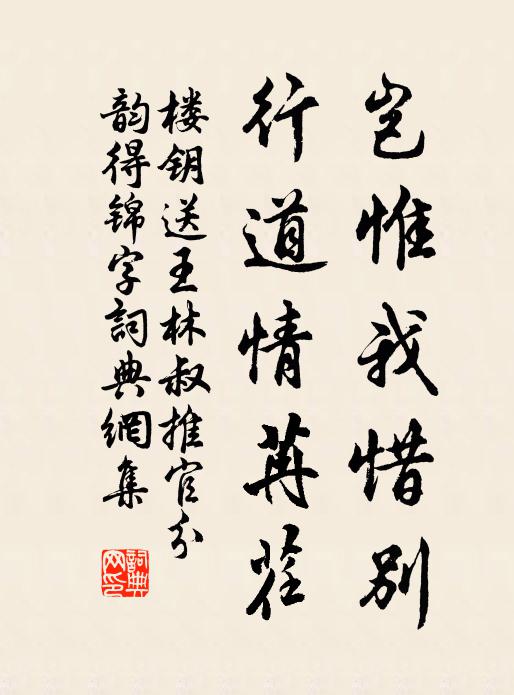 岂惟我惜别
行道情苒荏
楼钥送王林叔推官分
韵得锦字詞典網集
詞典網印